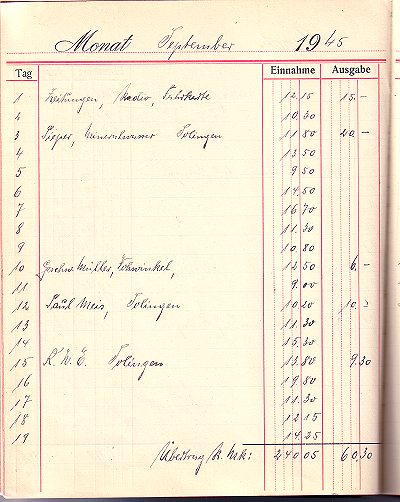 Monat September 1945
Tag Einnahme Ausgabe
1 Zeitungen, Radio, Fahrkarte 12.15 15.–
2 10.30
3 Pieper, Mineralwasser Solingen 11.80 20.–
4 13.50
5 9.50
6 14.50
7 16.70
8 11.30
9 10.80
10 Geschw. Müller, Vohwinkel, 12.50 6.–
11 9.00
12 Paul Meis, Solingen 10.20 10.–
13 11.30
14 15.30
15 R.W.E. Solingen 13.80 9.30
16 19.80
17 11.30
18 12.15
19 14.25
Übertrag Mk: 240.05 60.30